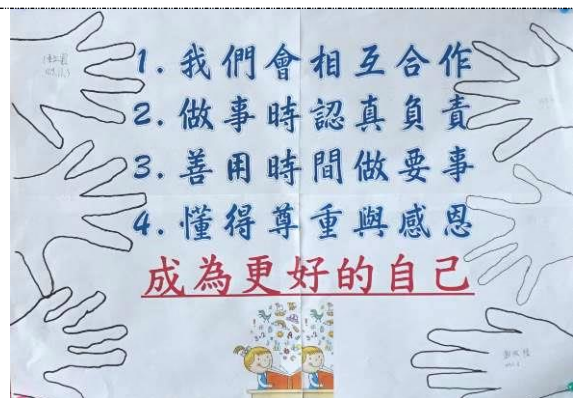 1. 我們會相互合作
2. 做事時認真負責
3. 善用時間做要事
4. 懂得尊重與感恩
成為更好的自己